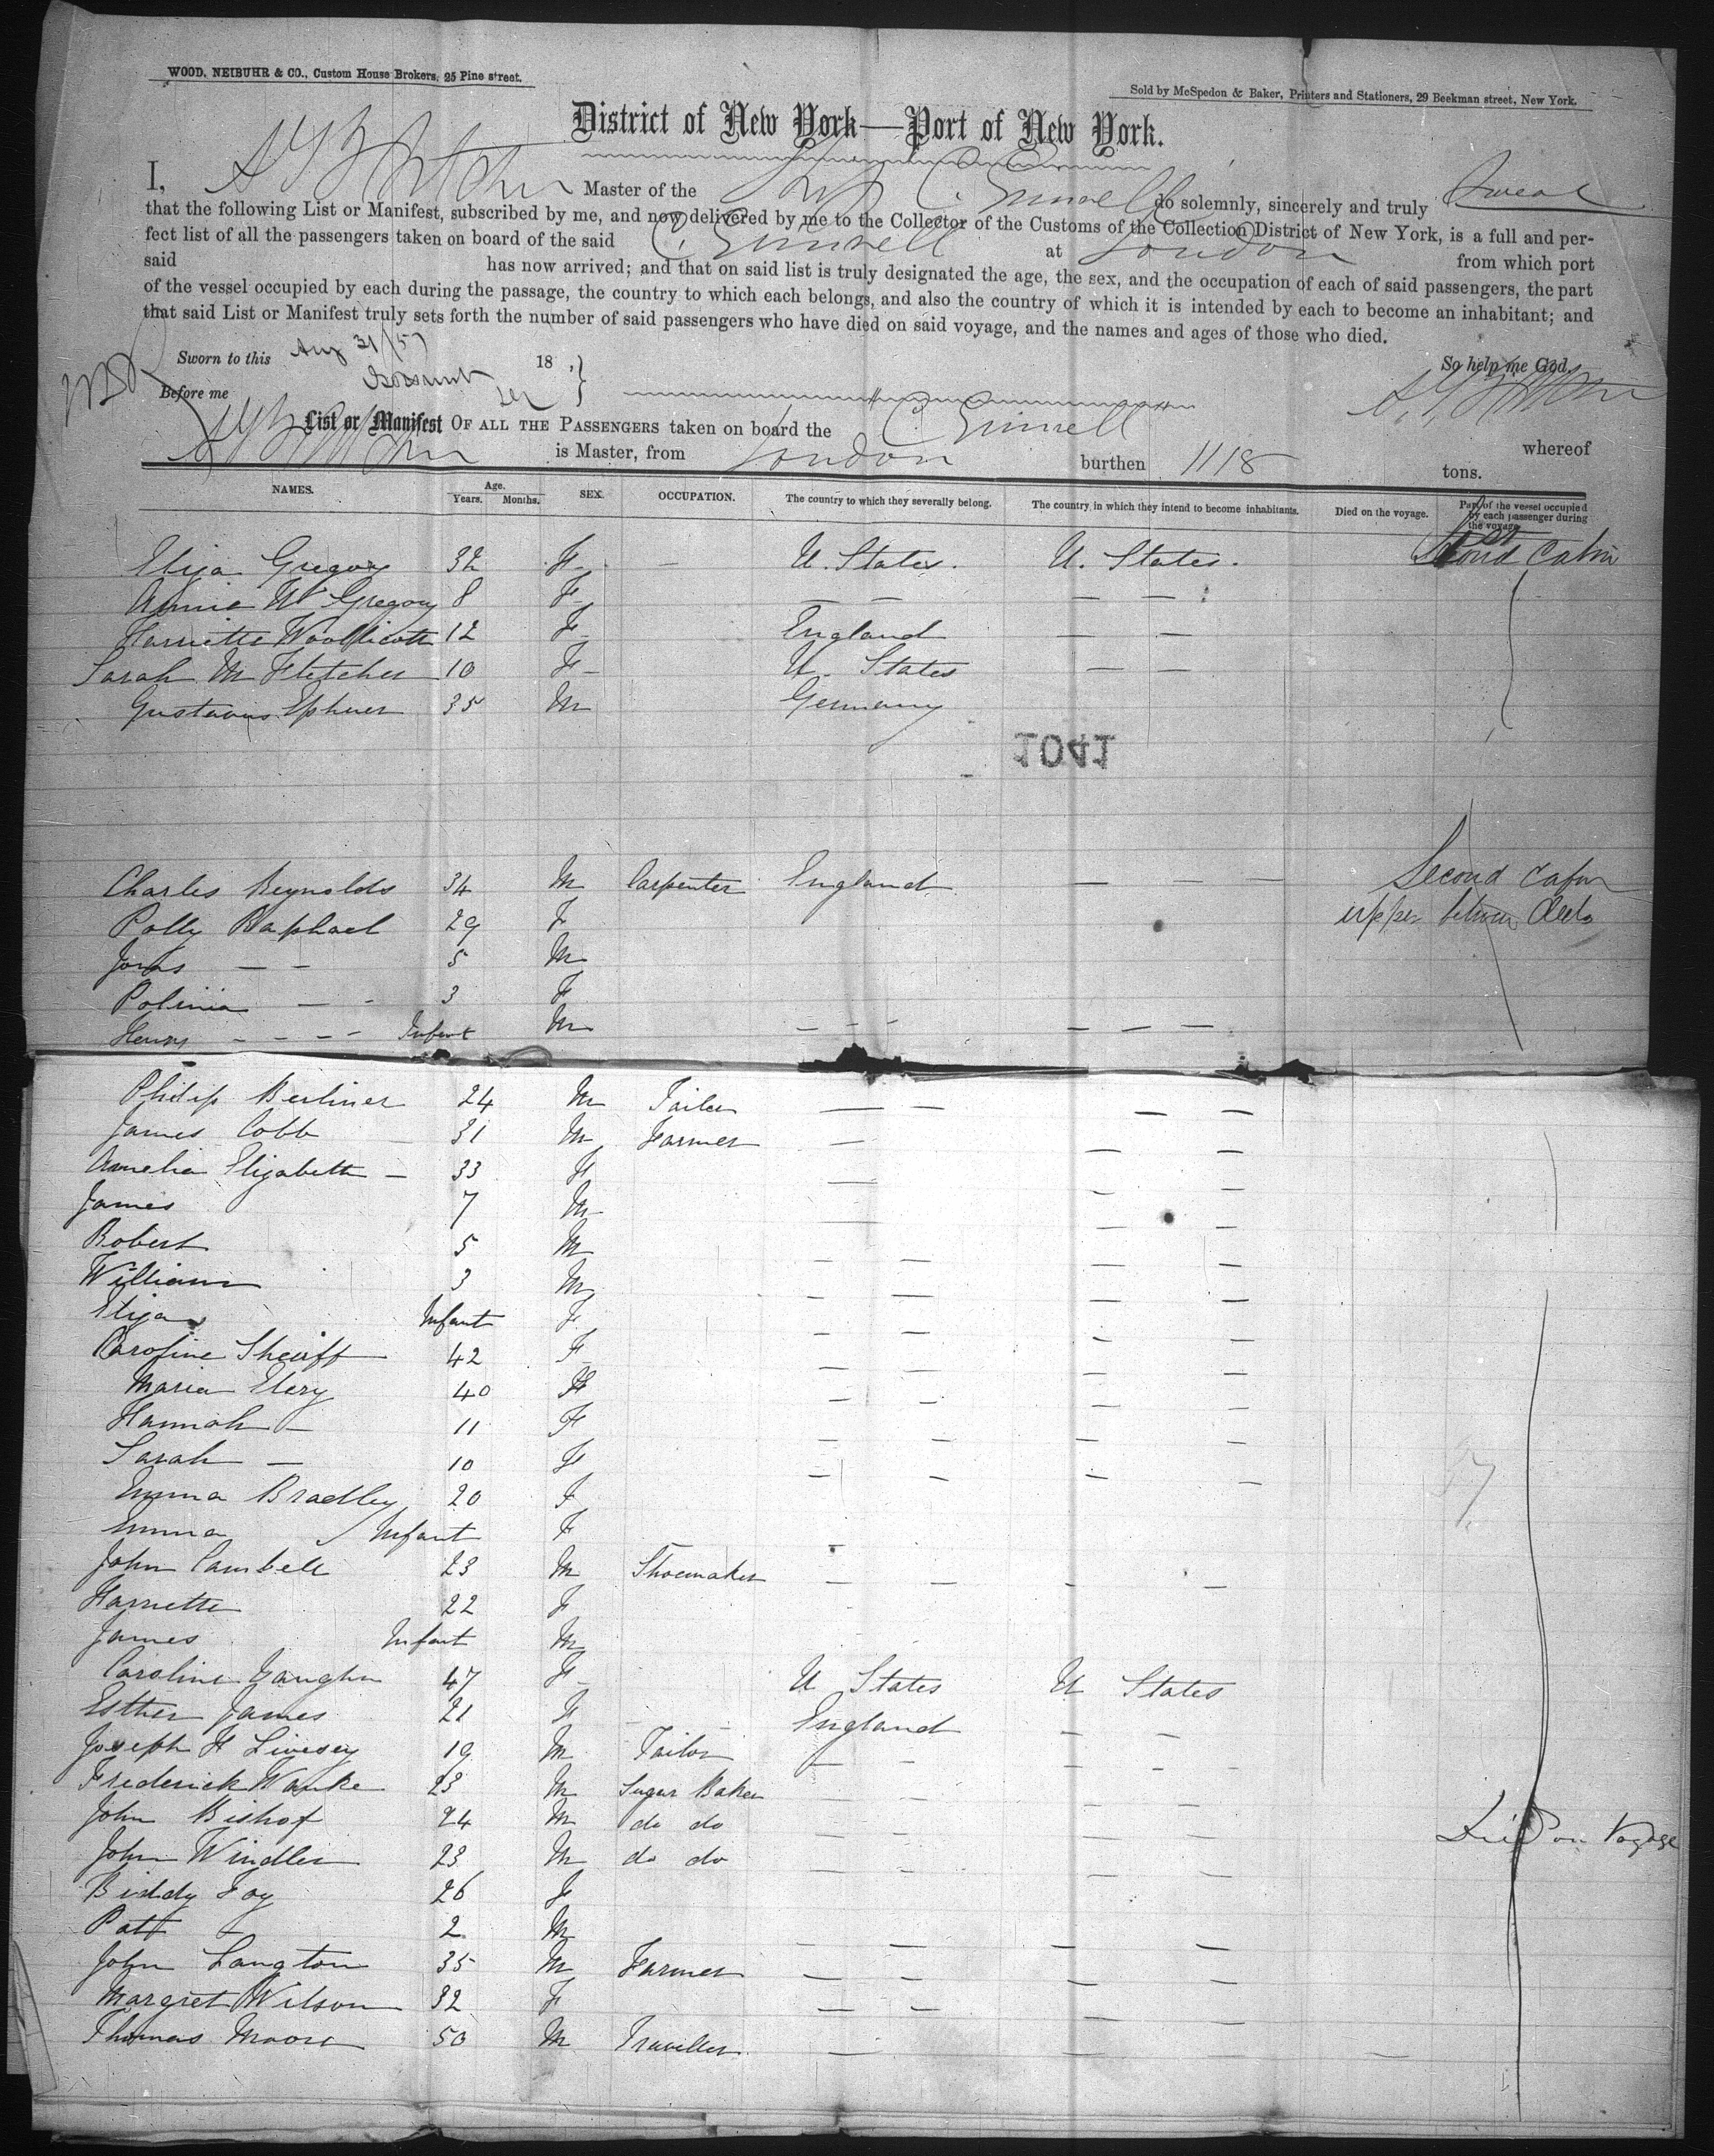 WOOD, NEIBUHR & CO., Custom House Brokers, 25 Pine street.
Sold by McSpedon & Baker, Printers and Stationers, 29 Beekman street, New York.
District of New York—Port of New York.
I, Master of the Ship C. Grinnell do solemnly, sincerely and truly Swear
that the following List or Manifest, subscribed by me, and now delivered by me to the Collector of the Customs of the Collection District of New York, is a full and per-
fect list of all the passengers taken on board of the said C. Grinnell at London from which port
said has now arrived; and that on said list is truly designated the age, the sex, and the occupation of each of said passengers, the part
of the vessel occupied by each during the passage, the country to which each belongs, and also the country of which it is intended by each to become an inhabitant; and
that said List or Manifest truly sets forth the number of said passengers who have died on said voyage, and the names and ages of those who died.
Sworn to this Aug 31/57 18 , So help me God.
Before me
List or Manifest OF ALL THE PASSENGERS taken on board the "C Grinnell" whereof
is Master, from London burthen 1118 tons.
NAMES. Age. Years. Months. SEX. OCCUPATION. The country to which they severally belong. The country in which they intend to become inhabitants. Died on the voyage. Part of the vessel occupied by each passenger during the voyage.
Eliza Gregory 32 F - U. States. U. States. Cabin
Annie W Gregory 8 F — — — —
Harriette Woollicott 12 F England — —
Sarah M Fletcher 10 F U. States — —
Gustavus 35 M Germany
1041
Charles Reynolds 34 M Carpenter England — — — Second Cabin
Polly Raphael 29 F upper between Decks
Jonas — — 5 M
Polinia — - 3 F
Henry - - - - Infant M - - - — — —
Philip Berliner 24 M Tailor — — — —
James Cobb 31 M Farmer — — —
Amelia Elizabeth — 33 F — — —
James 7 M — — —
Robert 5 M — — — —
William 3 M — — — —
Eliza Infant F — — — —
Caroline Sheriff 42 F — — — —
Maria Elery 40 F — — — —
Hannah — 11 F — — — —
Sarah — 10 F — — — —
Emma Bradley 20 F
Emma Infant F
John Cambell 23 M Shoemaker — — - —
Harriette 22 F
James Infant M
Caroline Vaughn 47 F U States U States
Esther James 21 F England — —
Joseph H Livesey 19 M Tailor — - - - -
Frederick Wanke 23 M Sugar Baker — — — —
John Bishof 24 M do do — — — — Died on Voyage
John Windler 23 M do do — — — —
Biddy Foy 26 F
Patt — 2 M — — — —
John Langton 35 M Farmer — — — —
Margret Wilson 32 F — — — —
Thomas Moore 50 M Traveller — — — — —